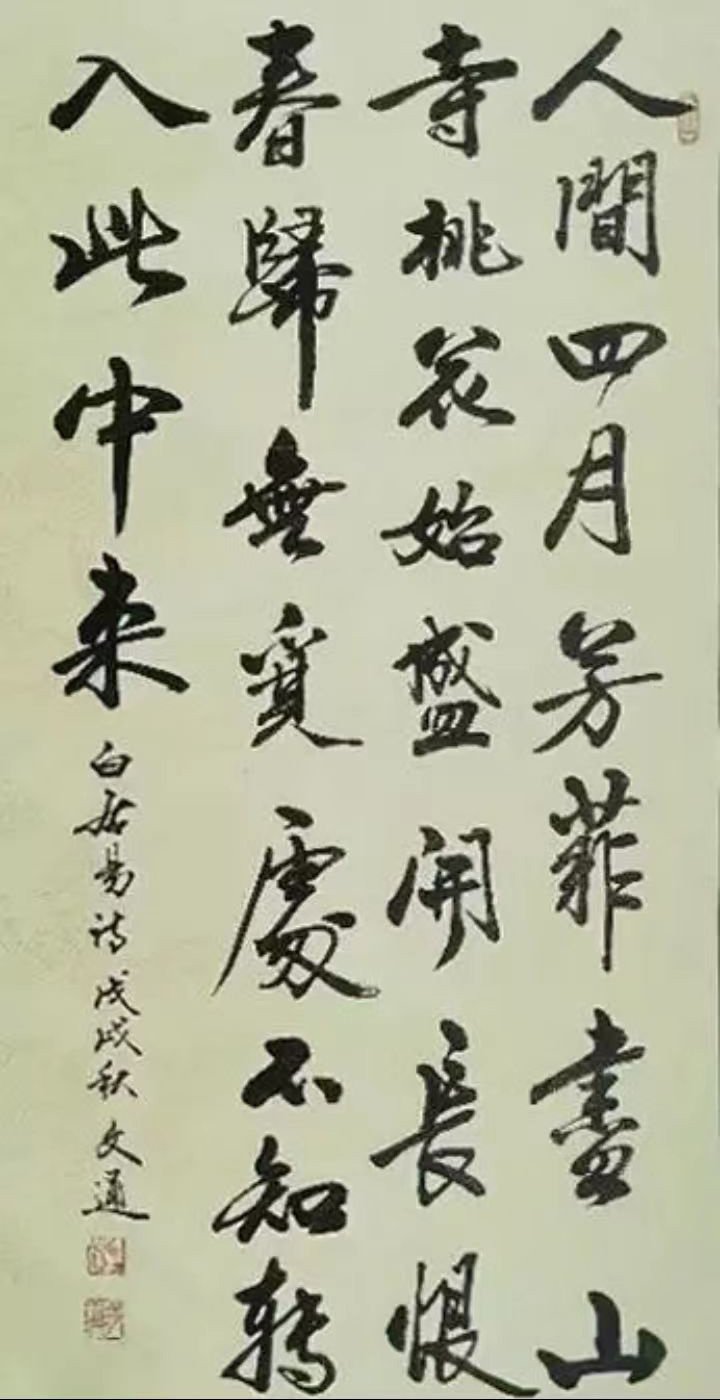 人間四月芳菲盡山
寺桃花始盛開長恨
春歸無覓處不知轉
入此中来
白居易诗戊戌秋文通